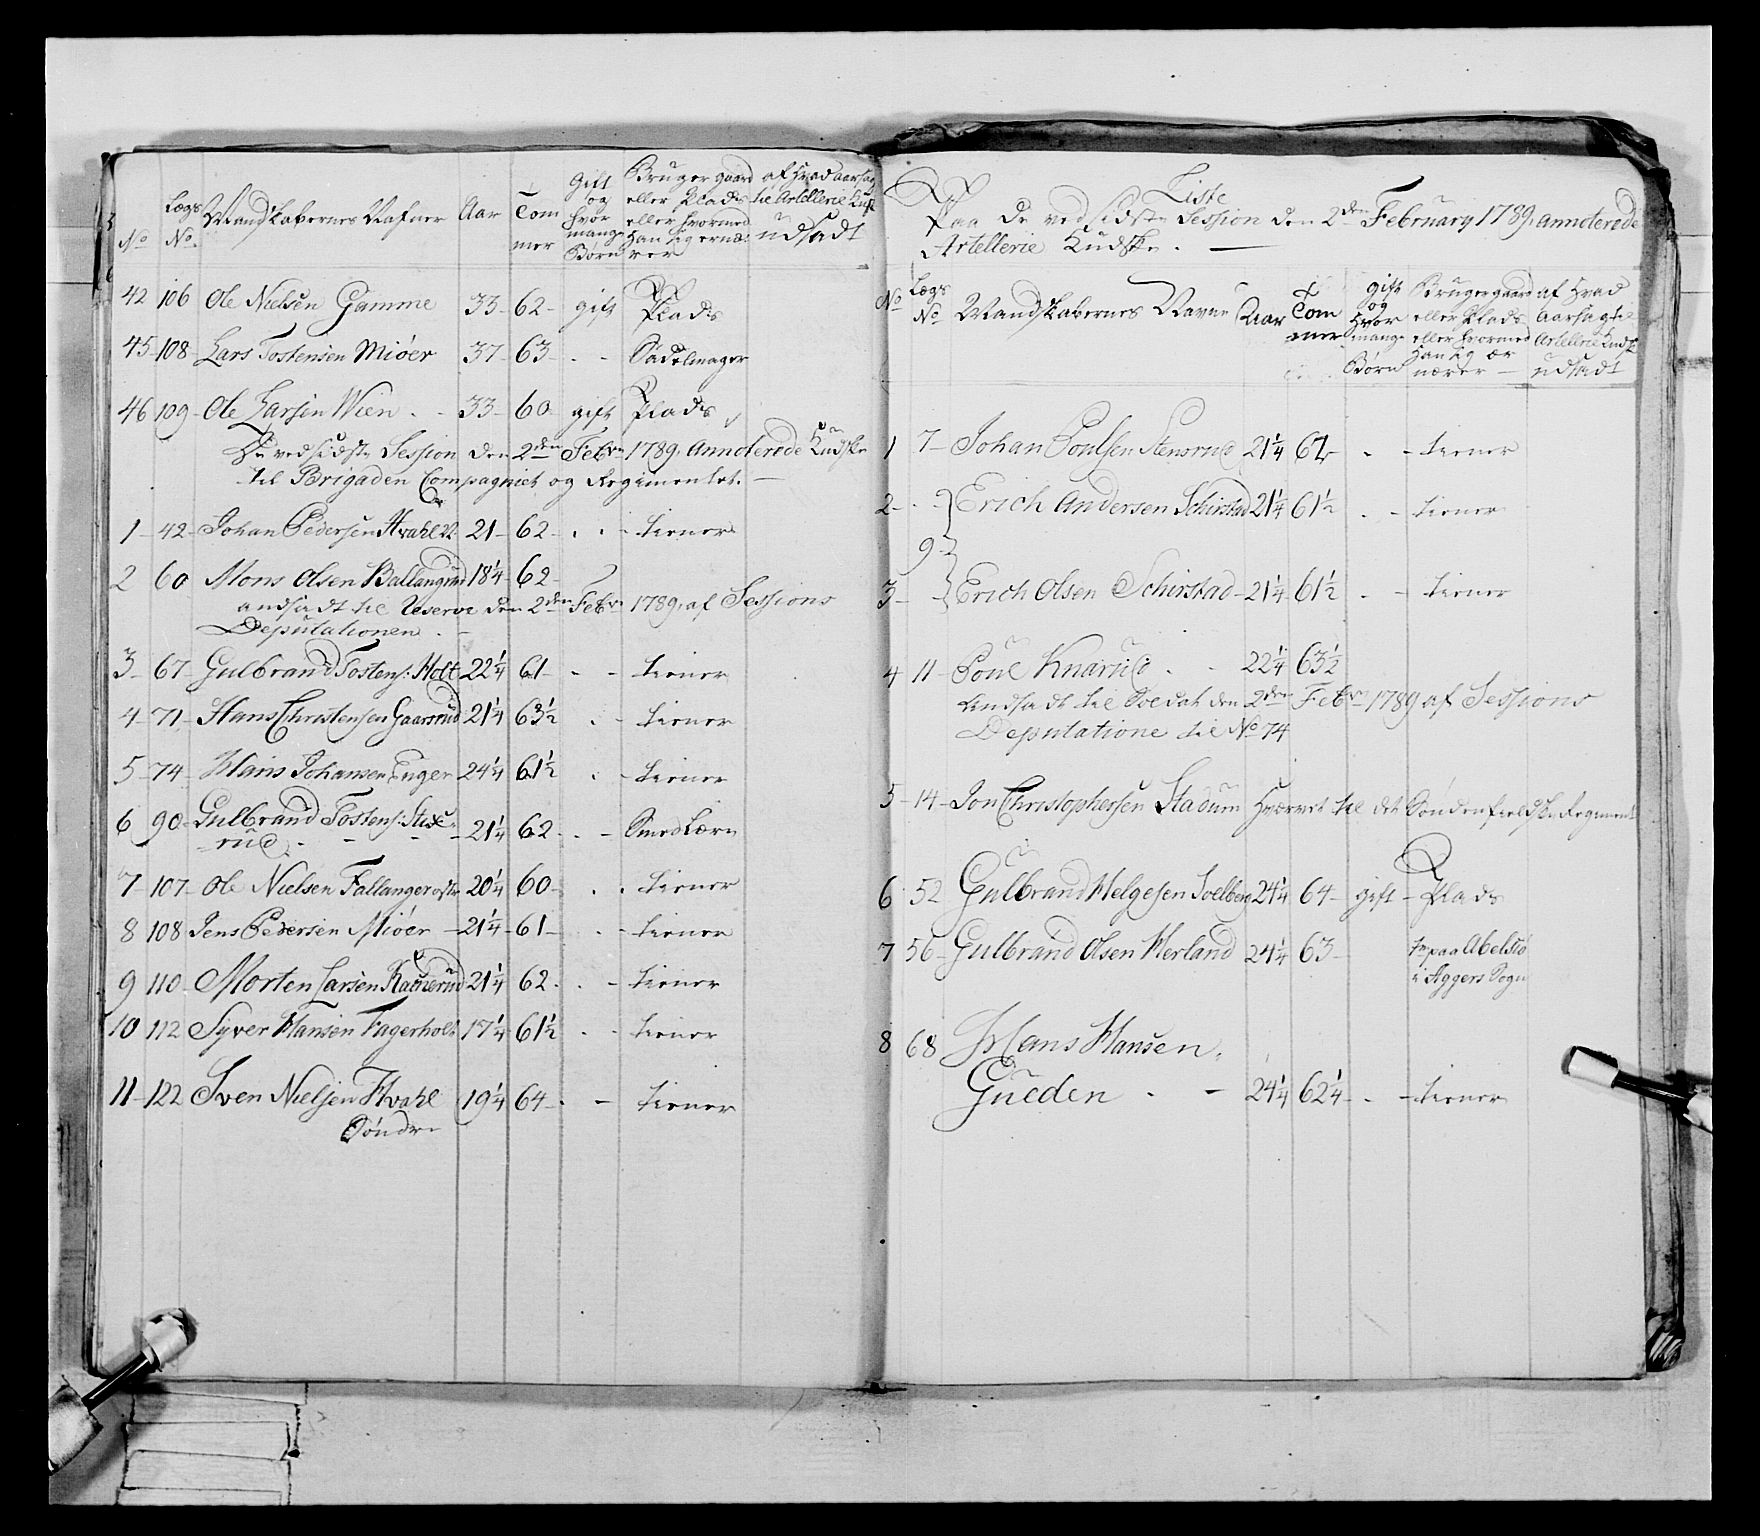 No
Legs No.
Mandskabernes Nafner
Aar
Tom mer
Gift og hvor mange Børn
Bruger gaard eller Plads eller hvormed han sig ernæ: rer
af hvad aarsag til Artellerie Kusk udsadt
42 106 Ole Nielsen Gamme 33 - 62 - gift Plads
45 - 108 Lars Tostensen Miøer 37 - 63 - . - Sadelmager
46 109 - Ole Larsen Wien . - 33 - 60 gift Plads
De ved sidste Session den 2den Febr. 1789. Annoterede Kudske
til Brigaden Compagniet og Regimentet. -
1 - 42 - Johan Pedersen Hvahl N. 21 - 62 - . . - tiener
2 60 Mons Olsen Ballangrud 18 1/4 - 62 -
andsadt til Reserve den 2den Febr. 1789, af Sessions
Deputationen . -
3 - 67 - Gulbrand Tostens: Holt 22 1/4 61 - - - tiener
4 - 71 - Hans Christensen Gaarsrud 21 1/4 63 1/2 . - tiener
5 - 74 - Hans Johansen Enger 24 1/4 61 1/2 . - tiener
6 90 - Gulbrand Tostens: Stixe-
rud . - - - 21 1/4 62 - . - Smed Læra
7 - 107 - Ole Nielsen Fallanger østr 20 1/4 60 - . . tiener
8 108 Jens Pedersen Miøer - 21 1/4 - 61 - . - tiener
9 110 - Morten Larsen Kaanerud 21 1/4 62 - . - tiener
10 112 Syver Hansen Fagerholt 17 1/4 61 1/2 . - tiener
11 - 122 Sven Nielsen Hvahl 19 1/4 64 - . - tiener
Søndre
Liste
Paa de ved sidste Session den 2den February 1789, annoterede
Artellerie Kudske . -
No
Legs No
Mandskabernes Navne
Aar
Tom mer
gift og hvor mange Børn
Bruger gaard eller Plads eller hvormed han sig ær nærer -
af hvad Aarsag til Artellerie Kudsk udsadt
1 7 - Johan Poulsen Stensrud 21 1/4 62 - . - tiener
2 - . - Erich Andersen Schirstad 21 1/4 61 1/2 . - tiener
9 -
3 - Erich Olsen Schirstad - 21 1/4 61 1/2 . - tiener
4 11 - Poul Knarud . - 22 1/4 63 1/2
Andsadt til Soldat den 2den Febr. 1789 af Sessions
Deputatione til No 74
5 - 14 - Jon Christophersen Stadum hværvet til det Søndenfieldske Regiment
6 52 Gulbrand Helgesen Soelberg 24 1/4 64 - gift - Plads
7 56 - Gulbrand Olsen Herland 24 1/4 63 - paa Abelsiø
i Aggers Sogn
8 68 Hans Hansen.
Gueden . - 24 1/4 62 1/4 - . - tiener